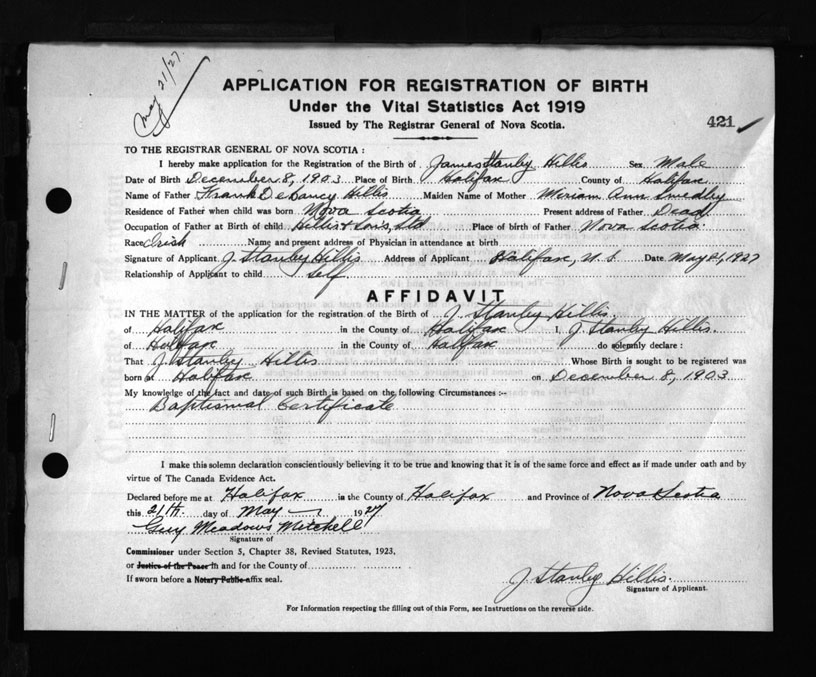 May 21/27.
APPLICATION FOR REGISTRATION OF BIRTH
Under the Vital Statistics Act 1919
Issued by The Registrar General of Nova Scotia.
421
TO THE REGISTRAR GENERAL OF NOVA SCOTIA :
I hereby make application for the Registration of the Birth of James Stanley Hillis Sex Male
Date of Birth December 8, 1903 Place of Birth Halifax County of Halifax
Name of Father Frank DeLancy Hillis Maiden Name of Mother Miriam Ann Smedley
Residence of Father when child was born Nova Scotia Present address of Father Dead
Occupation of Father at Birth of child Hillis & Sons, Ltd Place of birth of Father Nova Scotia.
Race Irish Name and present address of Physician in attendance at birth
Signature of Applicant J. Stanley Hillis Address of Applicant Halifax, N. S. Date May 21, 1927
Relationship of Applicant to child self
AFFIDAVIT
IN THE MATTER of the application for the registration of the Birth of J. Stanley Hillis.
of Halifax in the County of Halifax I, J Stanley Hillis.
of Halifax in the County of Halifax do solemnly declare :
That J Stanley Hillis Whose Birth is sought to be registered was
born at Halifax on December 8, 1903
My knowledge of the fact and date of such Birth is based on the following Circumstances :-
Baptismal Certificate
I make this solemn declaration conscientiously believing it to be true and knowing that it is of the same force and effect as if made under oath and by
virtue of The Canada Evidence Act.
Declared before me at Halifax in the County of Halifax and Province of Nova Scotia
this 21th. day of May 1927
Guy Meadows Mitchell
Signature of
Commissioner under Section 5, Chapter 38, Revised Statutes, 1923,
or Justice of the Peace in and for the County of
If sworn before a Notary Public affix seal.
J Stanley Hillis.
Signature of Applicant.
For Information respecting the filling out of this Form, see Instructions on the reverse side.